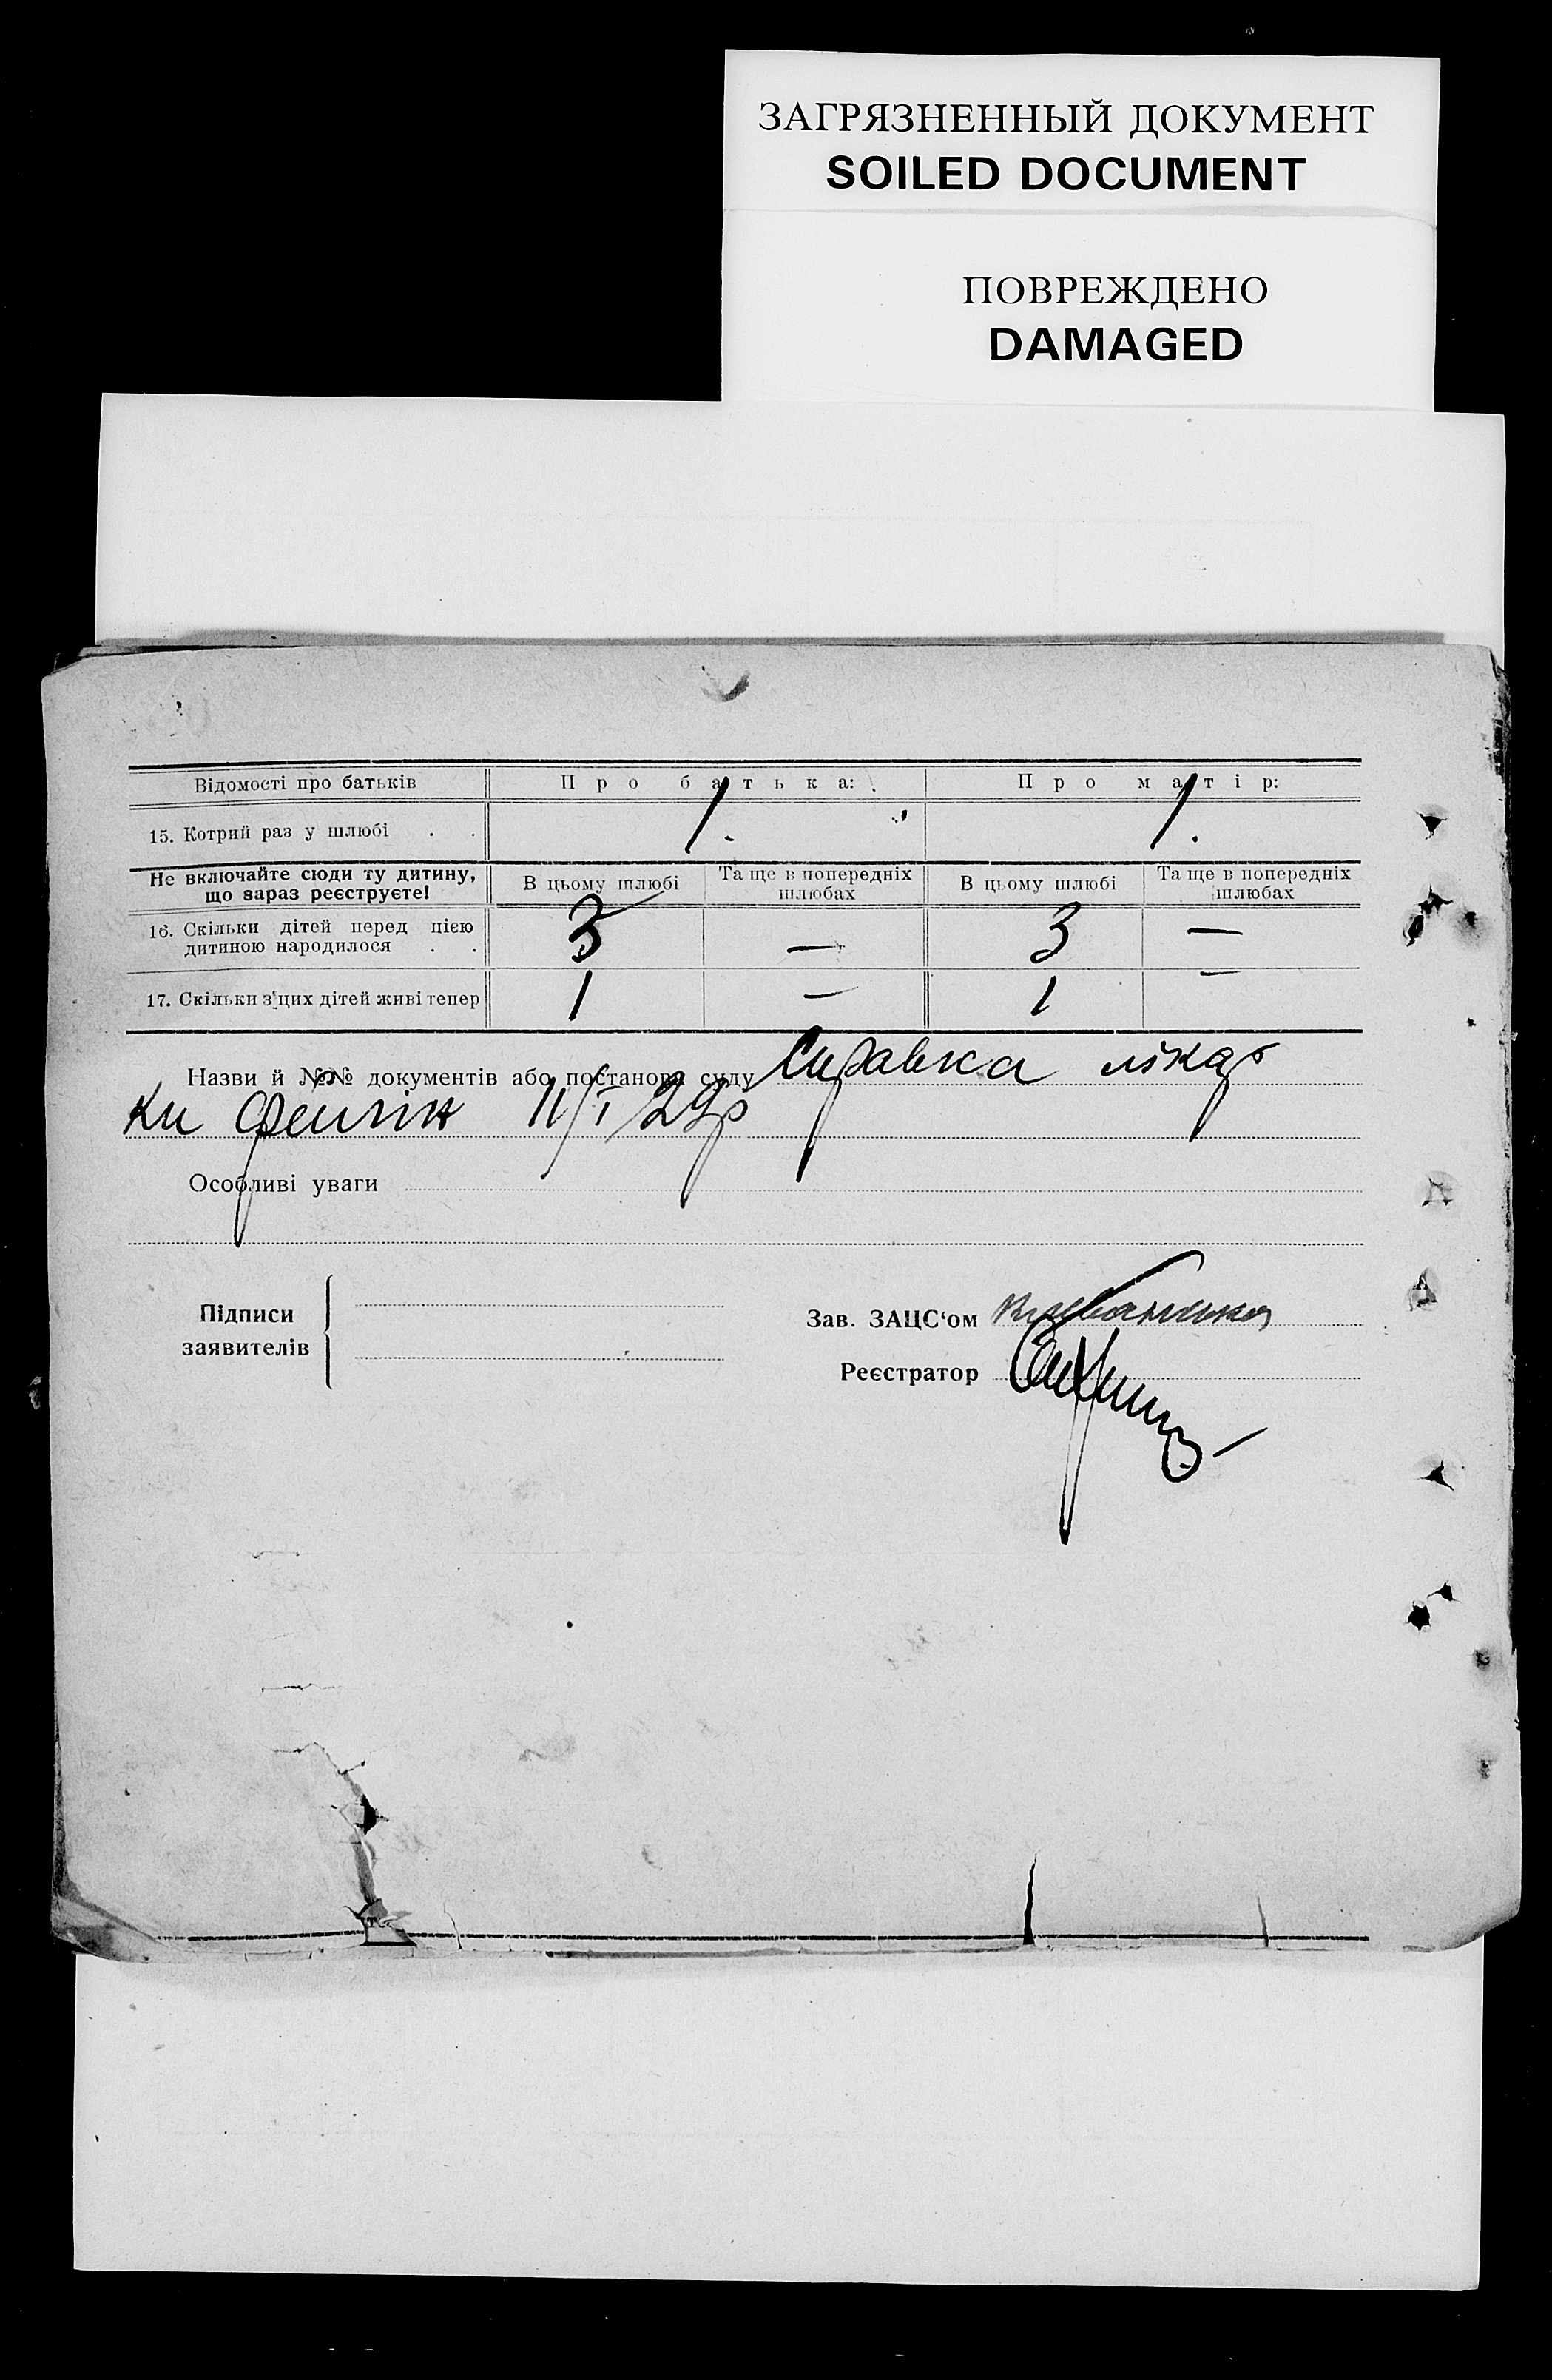 ЗАГРЯЗНЕННЫЙ ДОКУМЕНТ
SOILED DOCUMENT
ПОВРЕЖДЕНО
DAMAGED
Відомості про батьків Про батька: Про матір:
15. Котрий раз у шлюбі . . 1. 1.
Не включайте сюди ту дитину, що зараз реєструєте! В цьому шлюбі Та ще в попередніх шлюбах В цьому шлюбі Та ще в попередніх шлюбах
16. Скільки дітей перед цією
дитиною народилося . . 3 — 3 —
17. Скільки з цих дітей живі тепер 1 — 1 —
Назви й №№ документів або постанова суду Справка лікар
ки 11/I 29р
Особливі уваги
Підписи
заявителів
Зав. ЗАЦС‘ом
Реєстратор